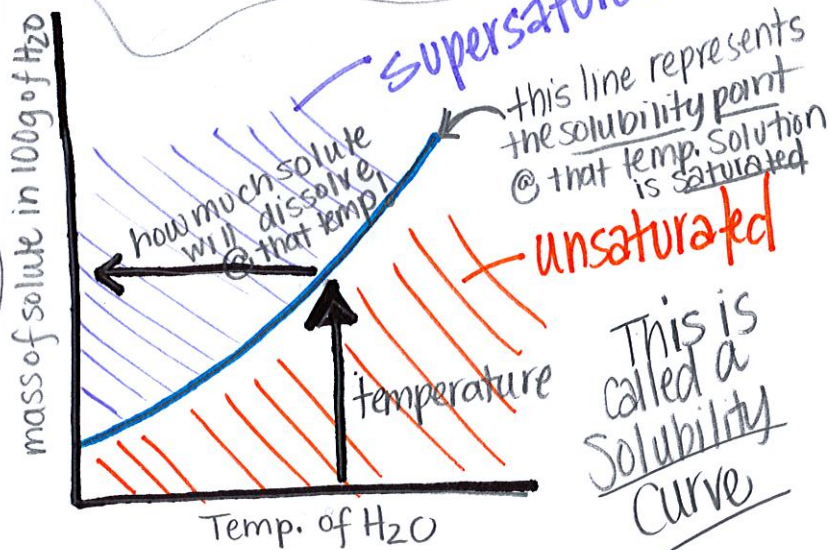 mass of solute in 100g of H2O
this line represents
the solubility point
@ that temp. solution
is saturated
how much solute
will dissolve
@ that temp!
unsaturated
temperature
This is
called a
Solubility
Curve
Temp. of H2O